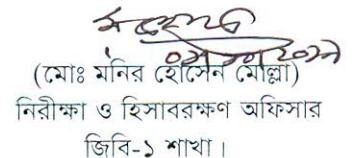 (মোঃ মনির হোসেন মোল্লা)
নিরীক্ষা ও হিসাবরক্ষণ অফিসার
জিবি-১ শাখা।